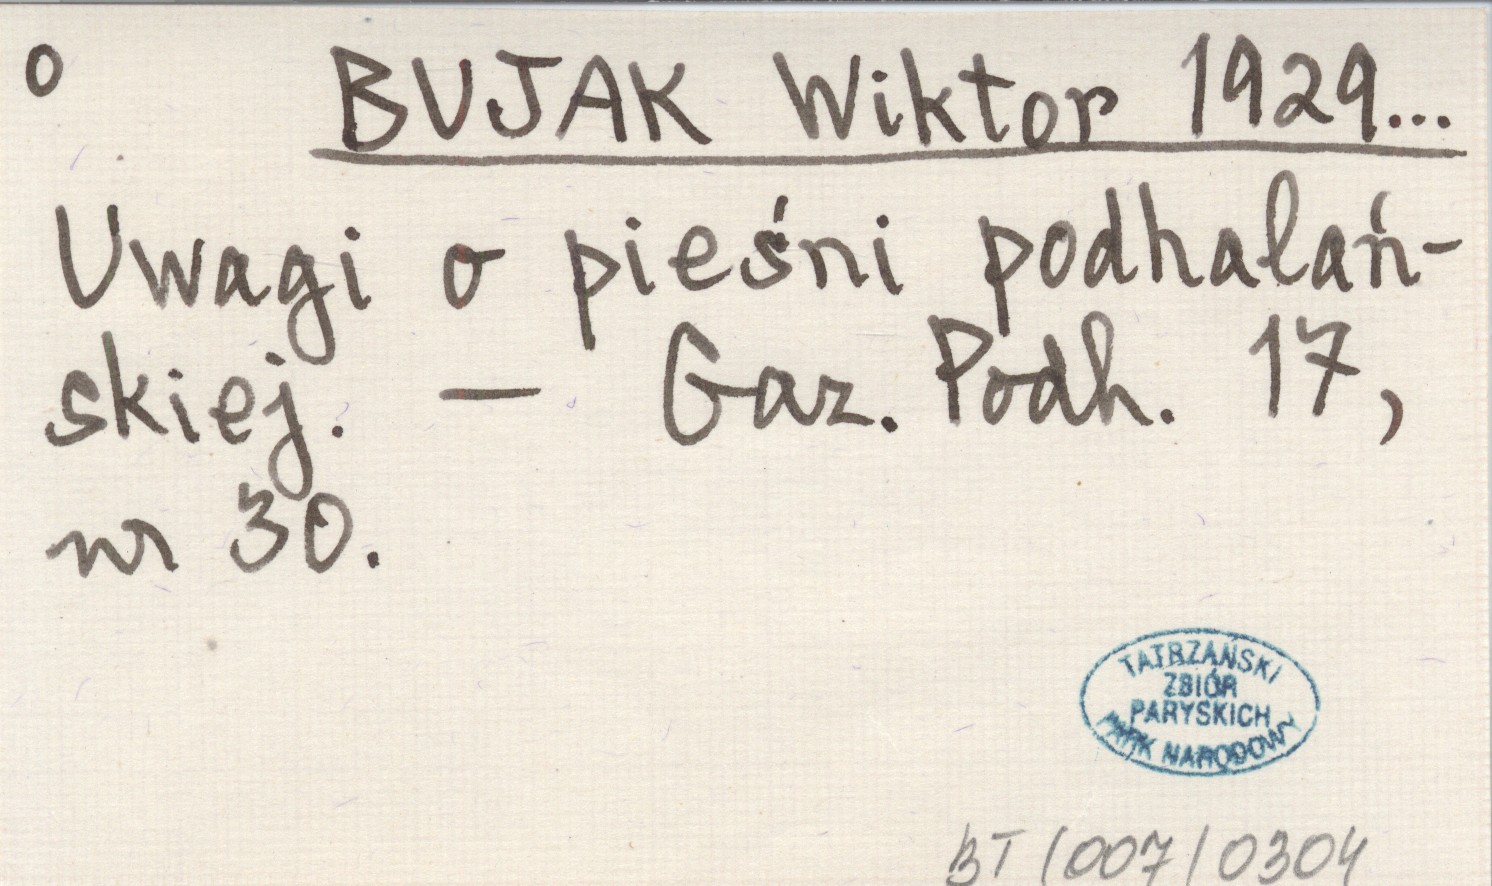 o BUJAK Wiktor 1929...
Uwagi o pieśni podhalań-
skiej. — Gaz. Podh. 17,
nr 30.
TATRZAŃSKI
ZBIÓR
PARYSKICH
PARK NARODOWY
BT/007/0304